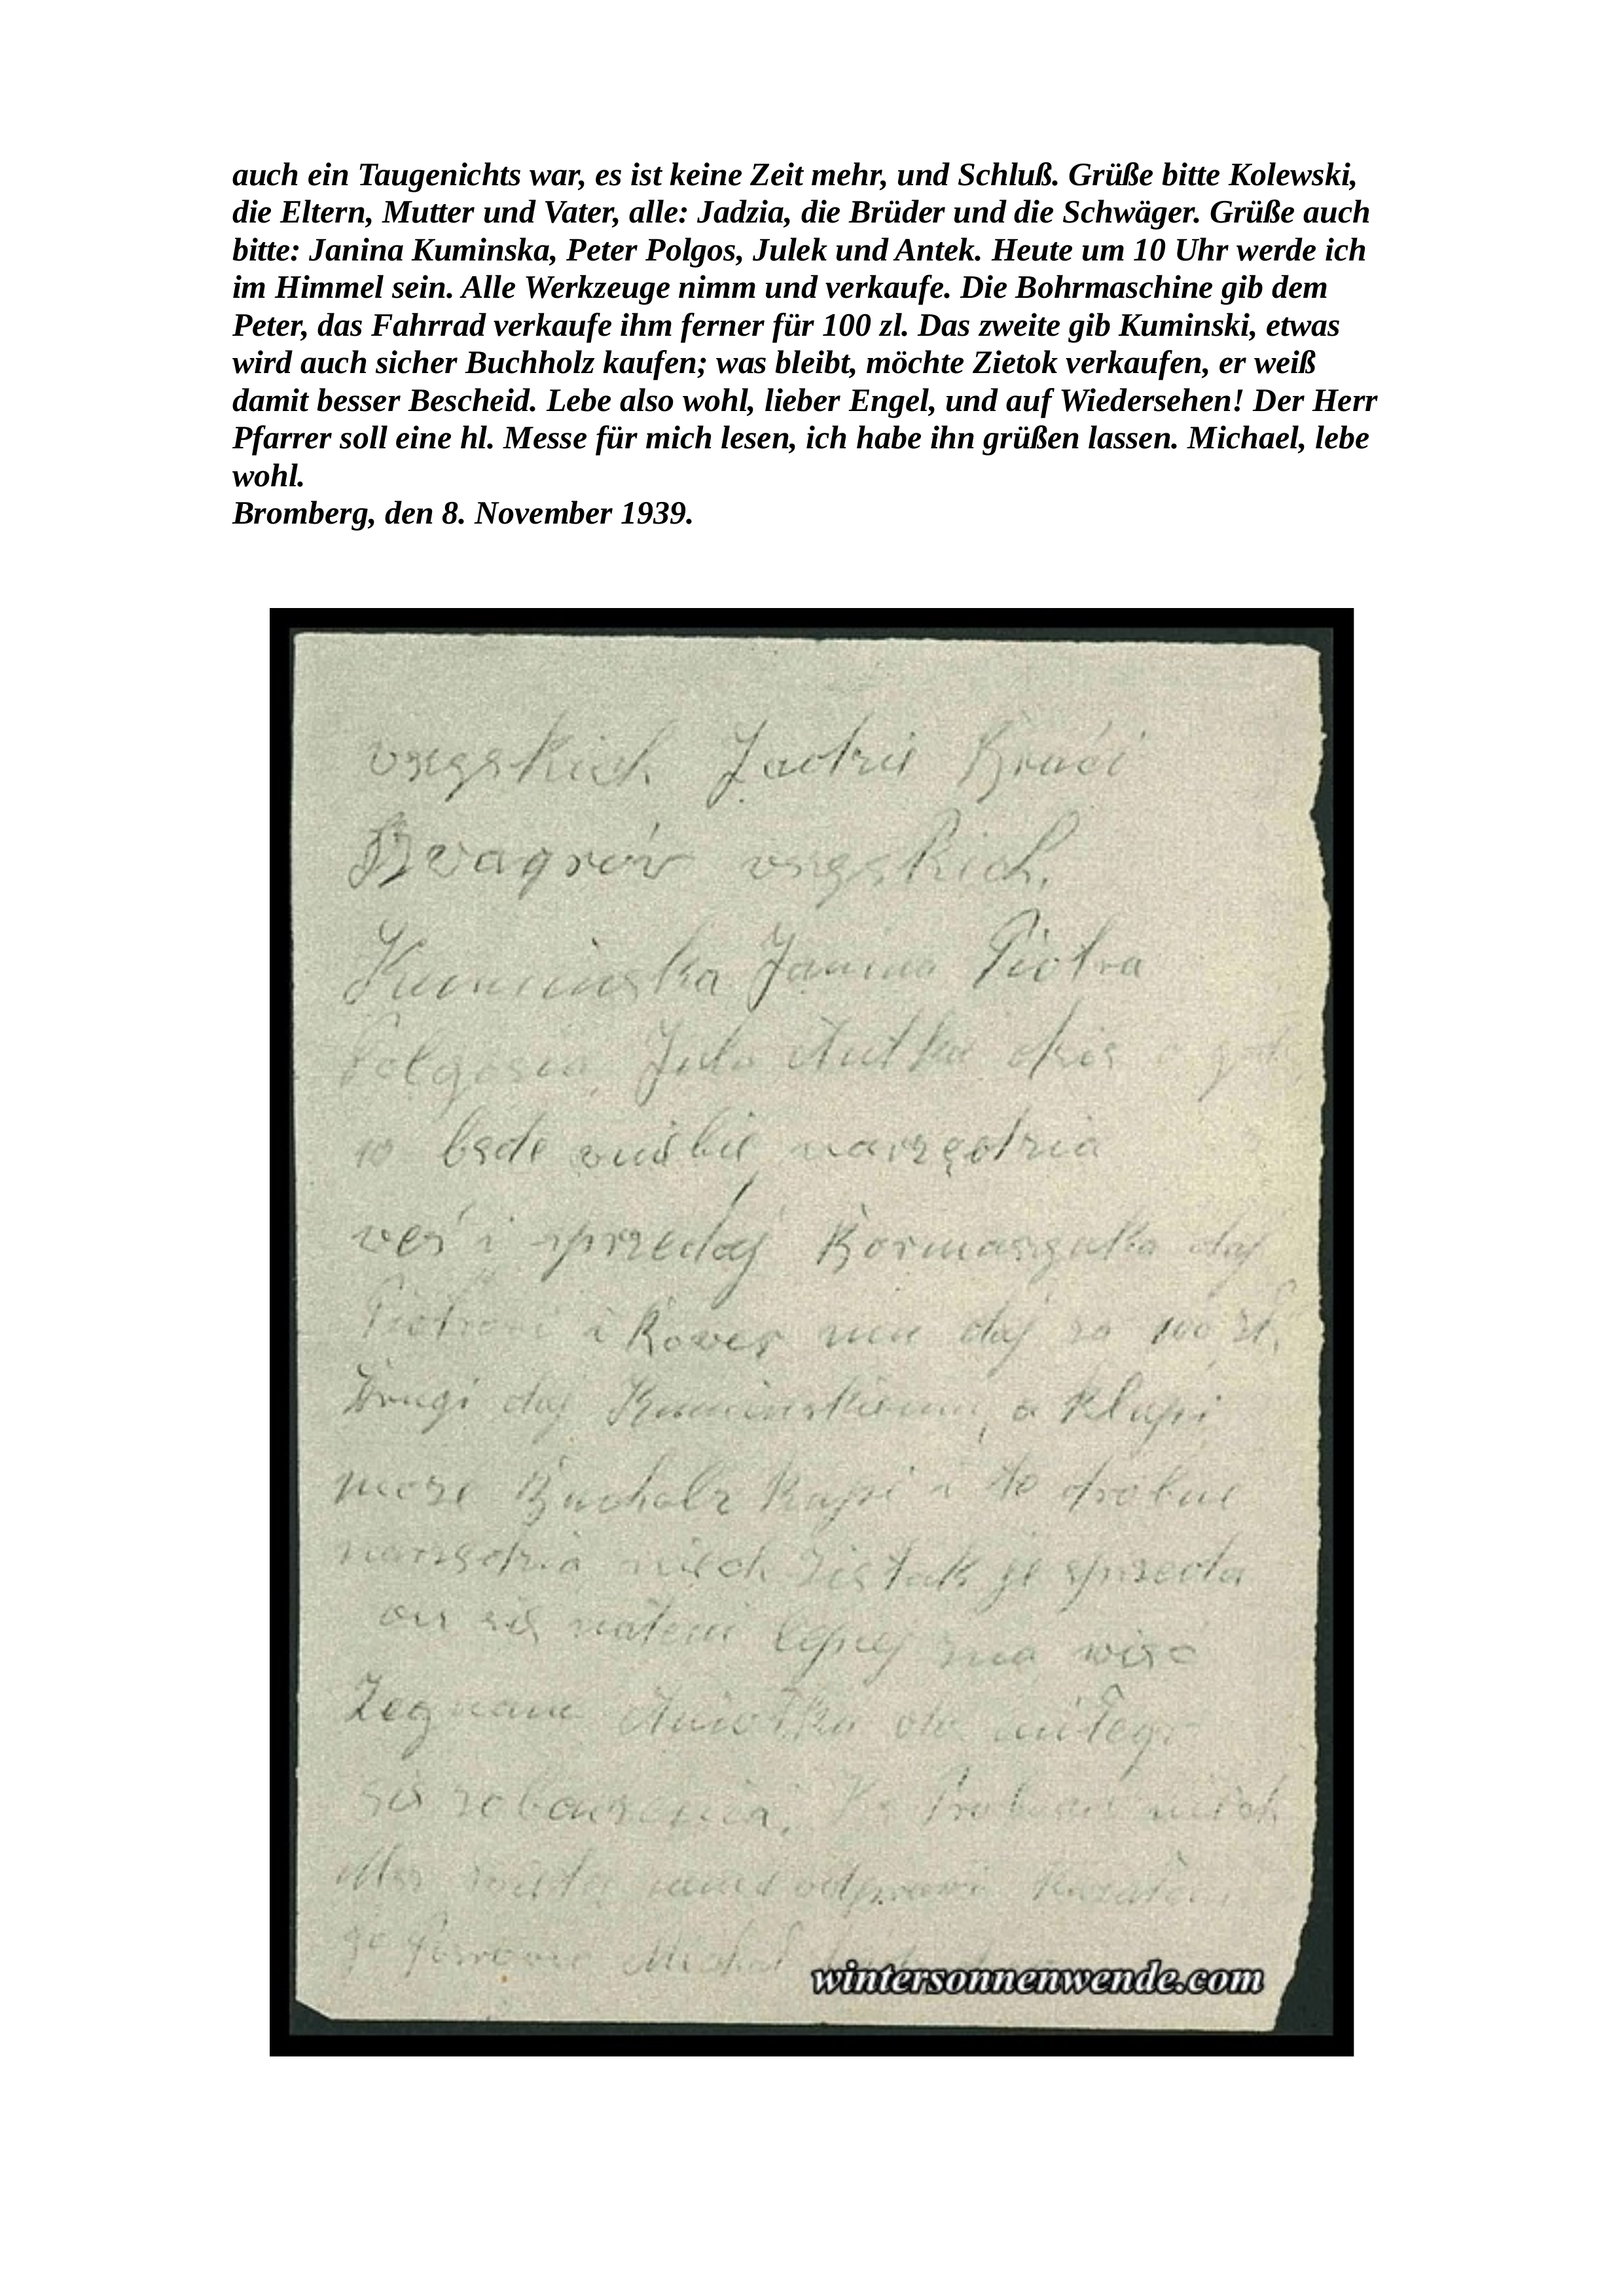 auch ein Taugenichts war, es ist keine Zeit mehr, und Schluß. Grüße bitte Kolewski,
die Eltern, Mutter und Vater, alle: Jadzia, die Brüder und die Schwäger. Grüße auch
bitte: Janina Kuminska, Peter Polgos, Julek und Antek. Heute um 10 Uhr werde ich
im Himmel sein. Alle Werkzeuge nimm und verkaufe. Die Bohrmaschine gib dem
Peter, das Fahrrad verkaufe ihm ferner für 100 zl. Das zweite gib Kuminski, etwas
wird auch sicher Buchholz kaufen; was bleibt, möchte Zietok verkaufen, er weiß
damit besser Bescheid. Lebe also wohl, lieber Engel, und auf Wiedersehen! Der Herr
Pfarrer soll eine hl. Messe für mich lesen, ich habe ihn grüßen lassen. Michael, lebe
wohl.
Bromberg, den 8. November 1939.
Jadzie Braci
Kuminska Janina Piotra
Jula Antka dziś o
10 bede narzędzia
weś i sprzedaj Bormaszynka daj
i Rower mu daj za 100 zł.
Drugi daj Kuminskiemu, a klupi
może Bucholz kupi i to drobne
narzędzia niech je sprzeda
on się lepiej zna
Żegnam Aniołku do miłego
zobaczenia. niech
Michał
wintersonnenwende.com